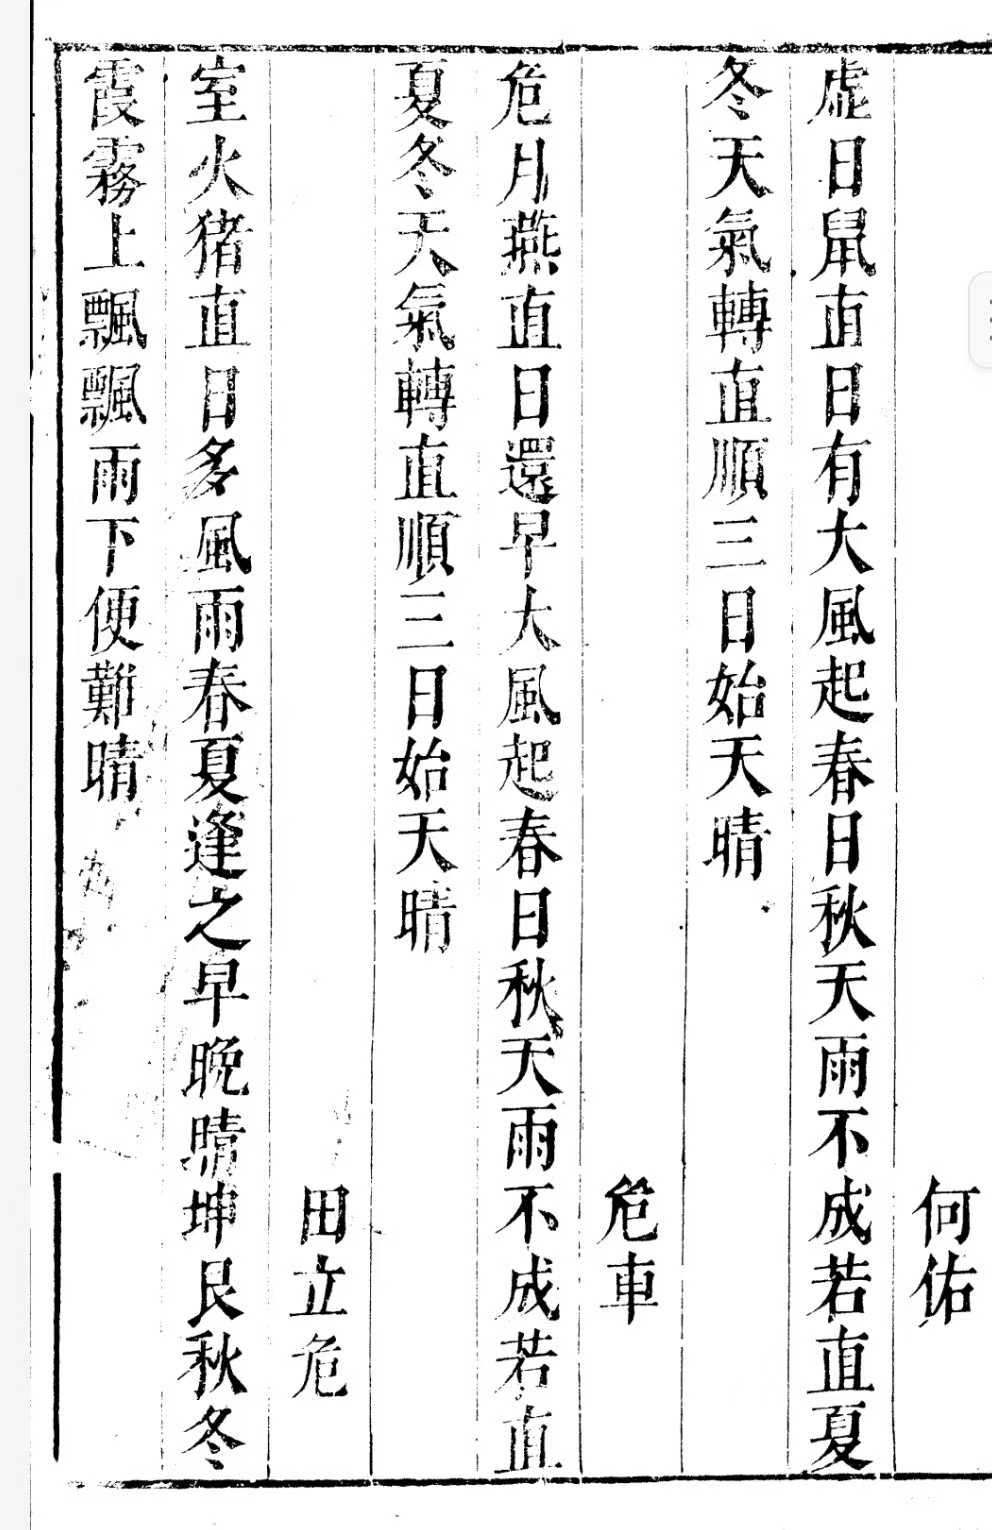 何佑
虛日鼠直日有大風起春日秋天雨不成若直夏
冬天氣轉直順三日始天晴
危車
危月燕直日還早大風起春日秋天雨不成若直
夏冬天氣轉直順三日始天晴
田立危
室火猪直日多風雨春夏逢之早晚晴坤艮秋冬
霞霧上飄飄雨下便難晴